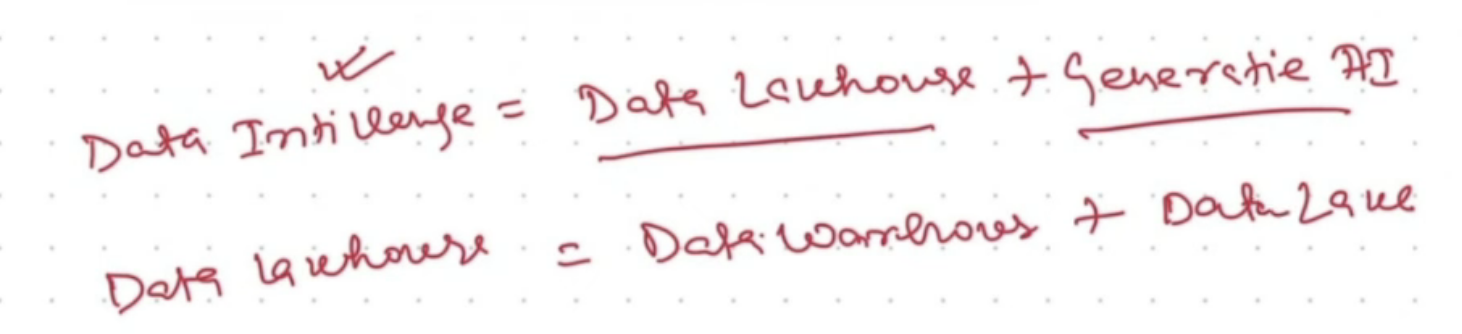 Data Intillenge = Data Lakehouse + Generatie AI
Data lakehouse = Data Warehous + Data Lake